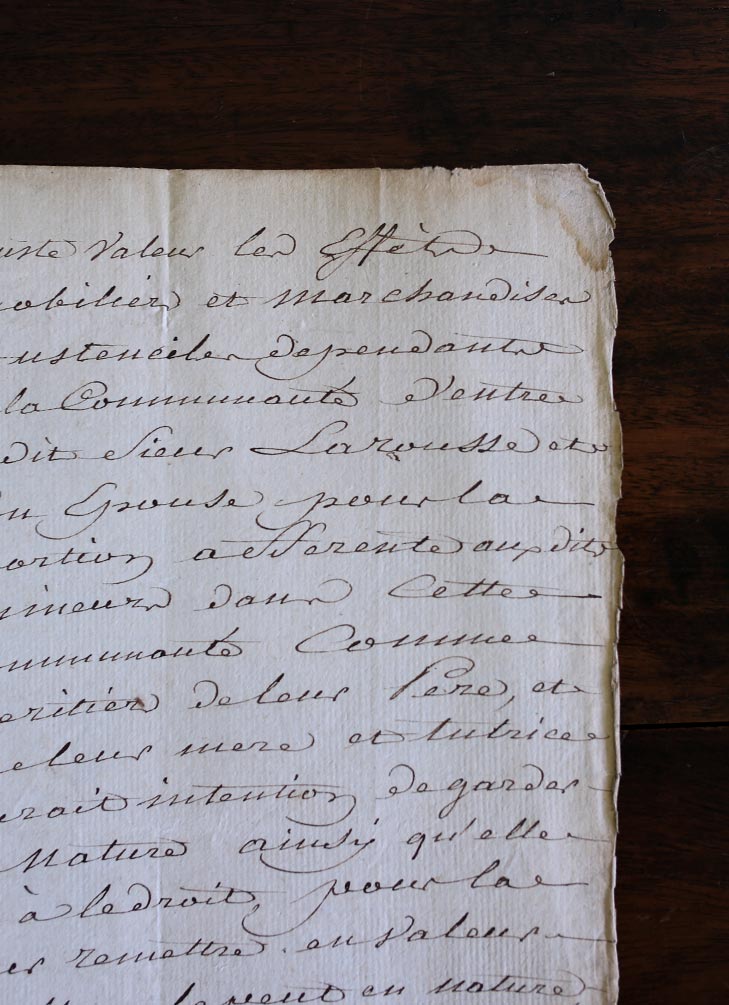 uste Valeur les Effets
obiliers et Marchandises
ustenciles dependants
la Communauté d'entre
dit Sieur Larousse et
n Epouse pour la
ortion afferente aux dits
mineurs dans Cette
ommunauté Comme
eritiers de leur Pere, et
e leur mere et tutrice
rait intention de garder
Nature ainsy qu'elle
à le droit, pour la
er remettre en valeur
le peut en nature,